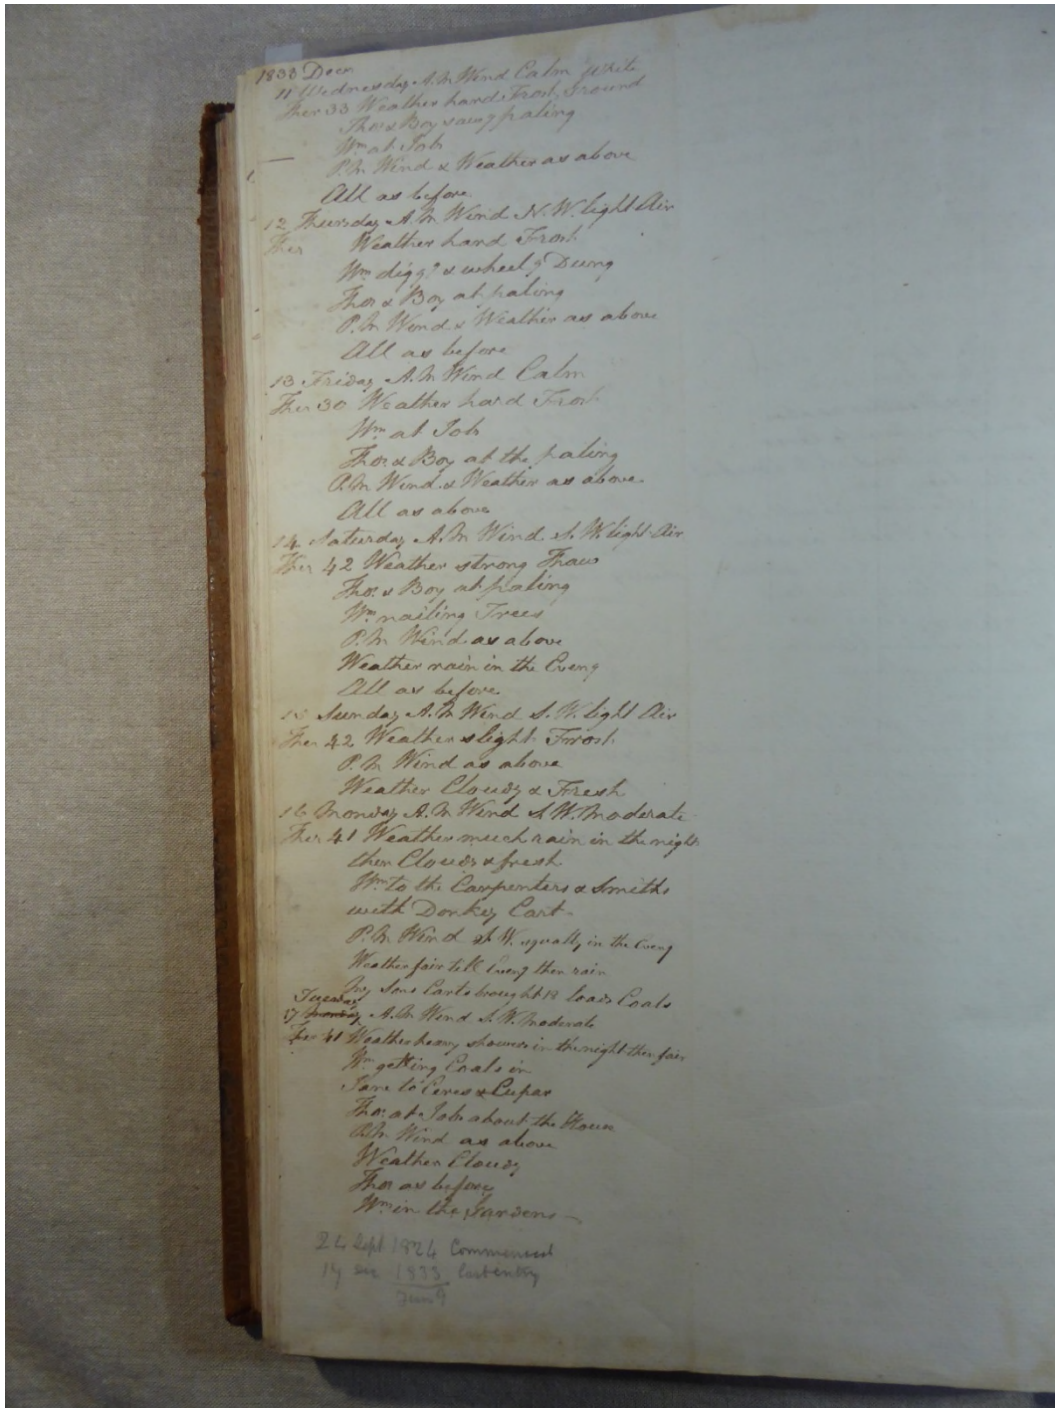 1833 Decr
11 Wednesday A.M Wind Calm White
Ther 33 Weather hard Frost, Ground
Thos & Boy sawg paling
Wm at Job
P.M Wind & Weather as above
All as before
12 Thursday A.M Wind N.W. light Air
Ther Weather hard Frost
Wm digg & wheelg Dung
Thos & Boy at paling
P.M Wind & Weather as above
All as before
13 Friday A.M Wind Calm
Ther 30 Weather hard Frost
Wm at Job
Thos & Boy at the paling
P.M Wind & Weather as above
All as above
14 Saturday A.M Wind S.W. light Air
Ther 42 Weather strong Thaw
Thos & Boy at paling
Wm nailing Trees
P.M Wind as above
Weather rain in the Eveng
All as before
15 Sunday A.M Wind S.W. light Air
Ther 42 Weather slight Frost
P.M Wind as above
Weather Cloudy & Fresh
16 Monday A.M Wind S.W. Moderate
Ther 41 Weather much rain in the night
then Cloudy & fresh
Wm to the Carpenters & Smiths
with Donkey Cart
P.M Wind S.W. squally in the Eveng
Weather fair till Eveng then rain
Sons Carts brought 12 loads Coals
Tuesday
17 Monday A.M Wind S.W. moderate
Ther 41 Weather heavy showers in the night then fair
Wm getting Coals in
Jane to Ceres & Cupar
Thos at Job about the House
P.M Wind as above
Weather Cloudy
Thos as before
Wm in the Gardens
24 Sept 1824 Commenced
17 Dec 1833 last entry